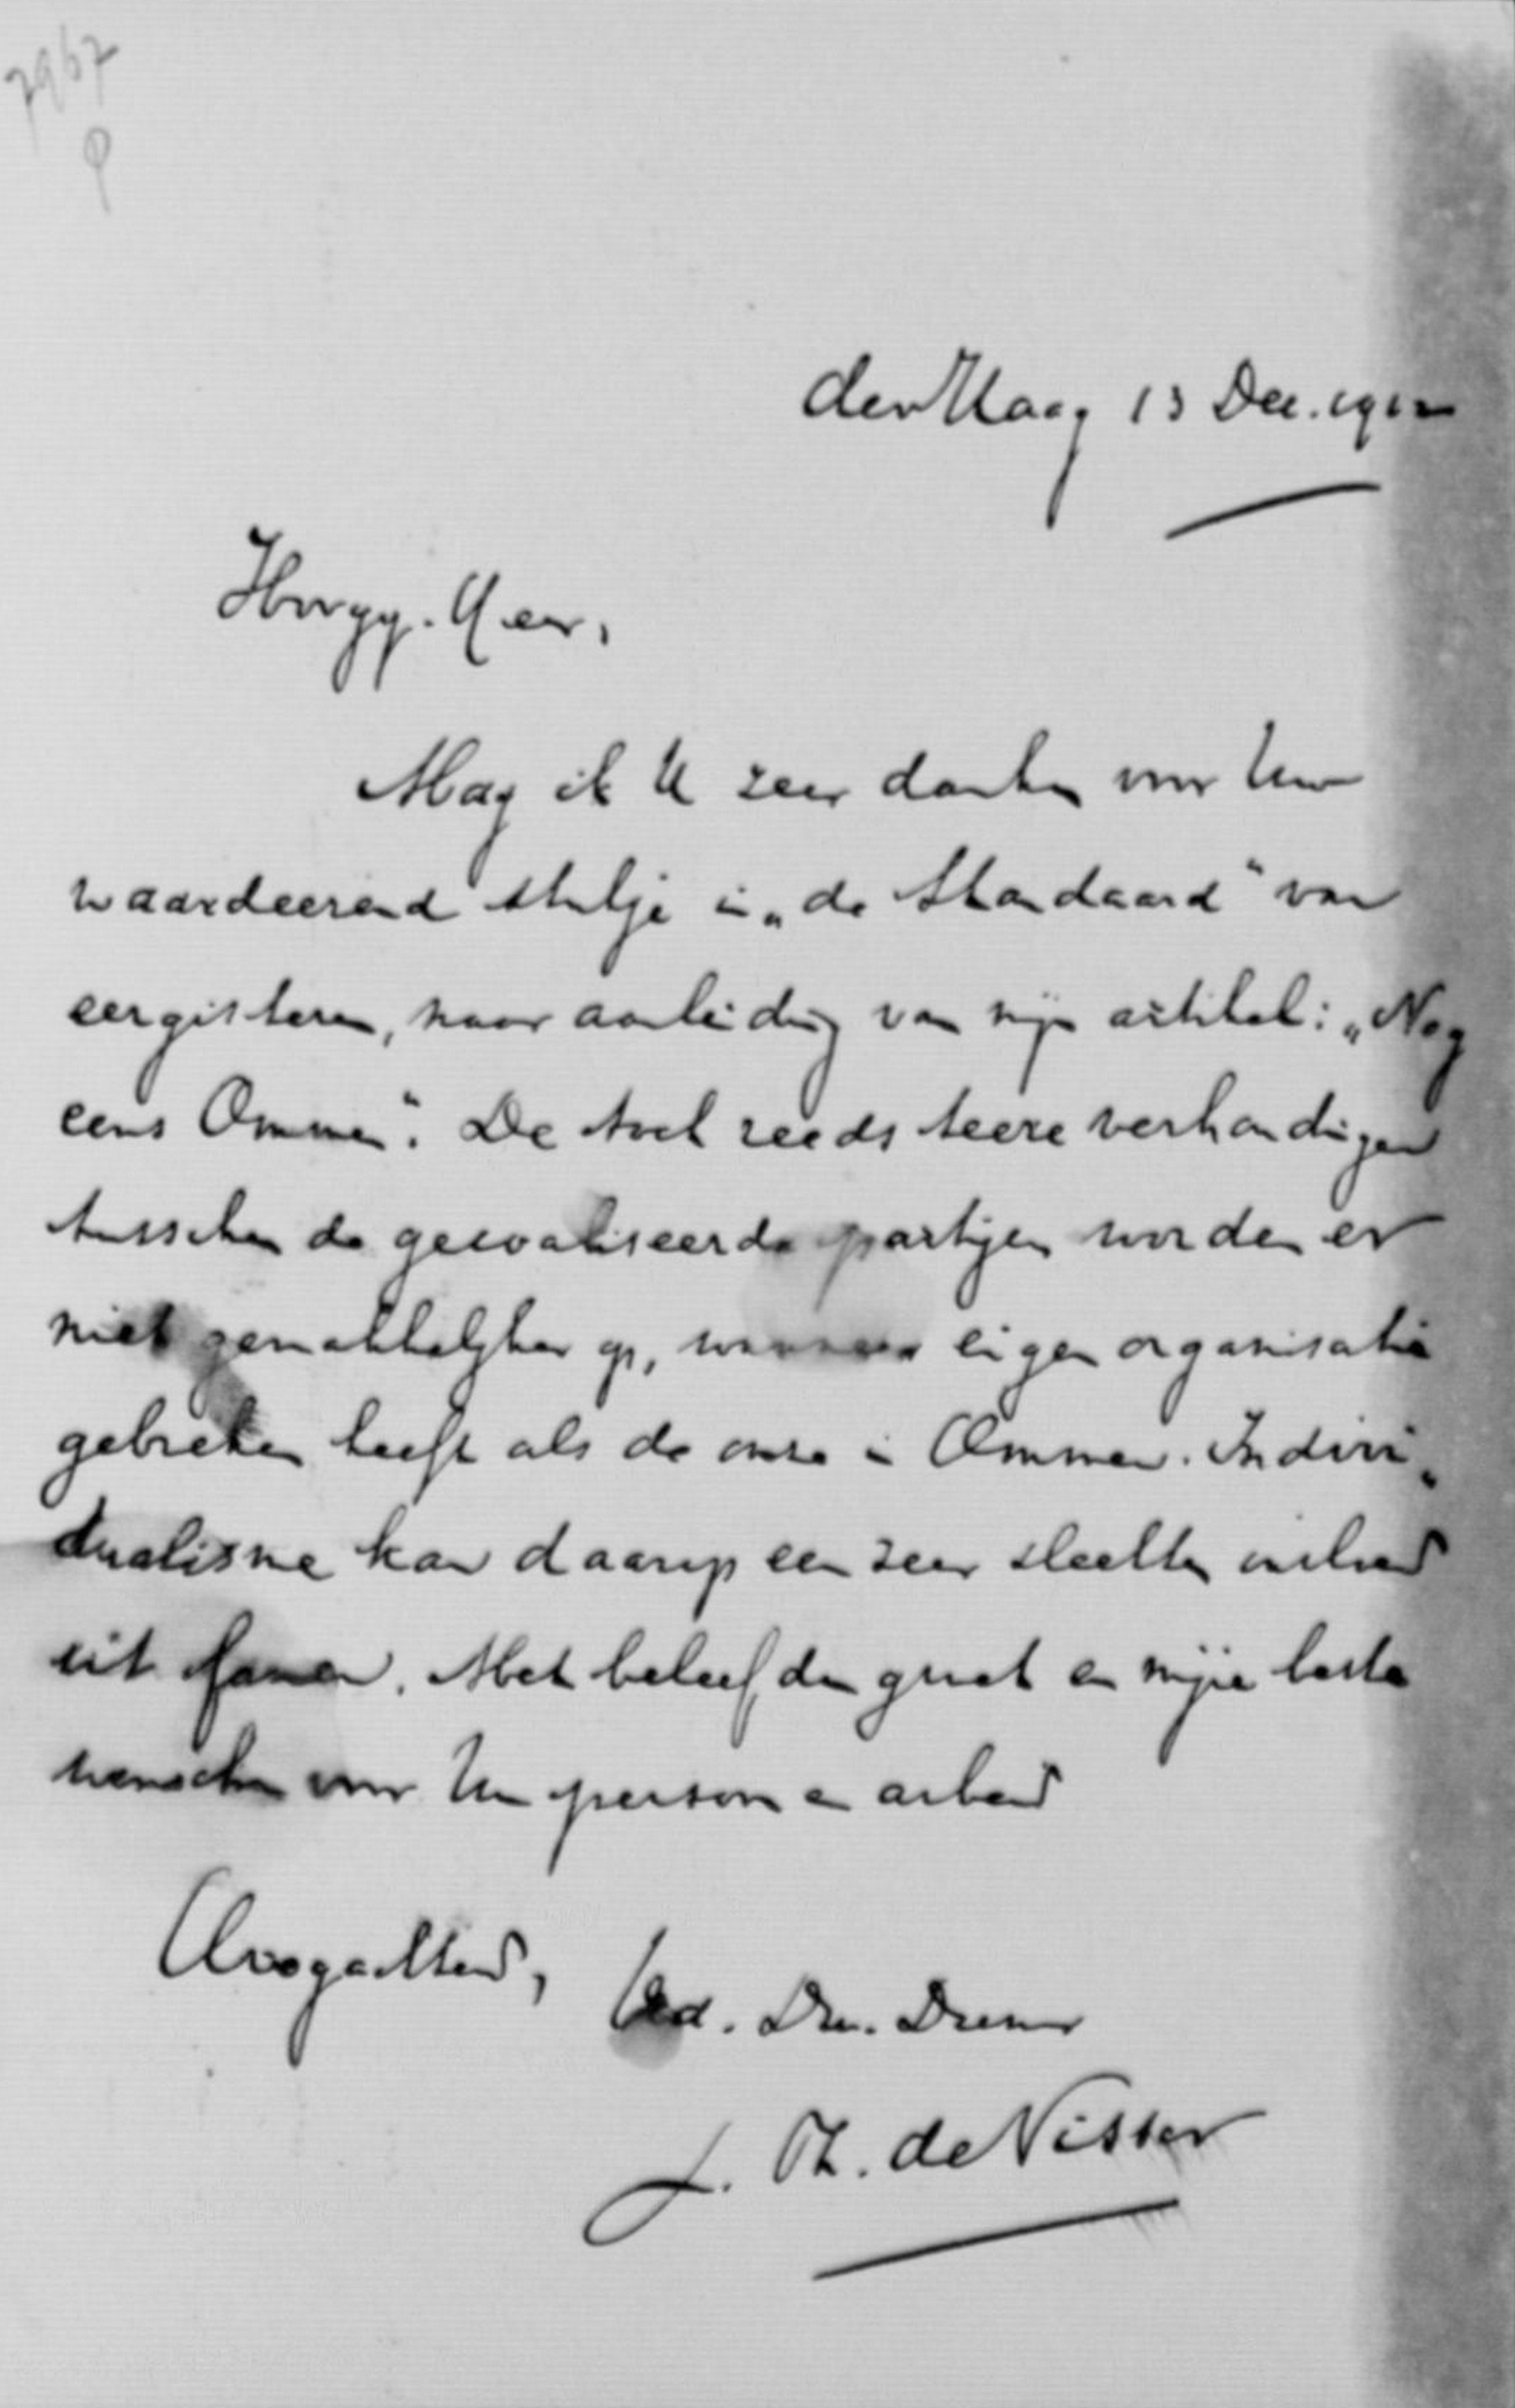 7967
den Haag 13 Dec. 1912
Hoogg. Heer,
Mag ik U zeer danken voor Uw
waardeerend stukje in „de Standaard" van
eergisteren, naar aanleiding van mijn artikel: „Nog
eens Ommen". De toch reeds teere verhoudingen
tusschen de gecoaliseerde partijen worden er
niet gemakkelijker op, wanneer eigen organisatie
gebreken heeft als de onze in Ommen. Indivi„
dualisme kan daarop een zeer slechten invloed
uit oefenen. Met beleefden groet en mijne beste
wenschen voor Uw persoon en arbeid
Hoogachtend,
Uw. Dw. Dienaar
J. Th. de Visser